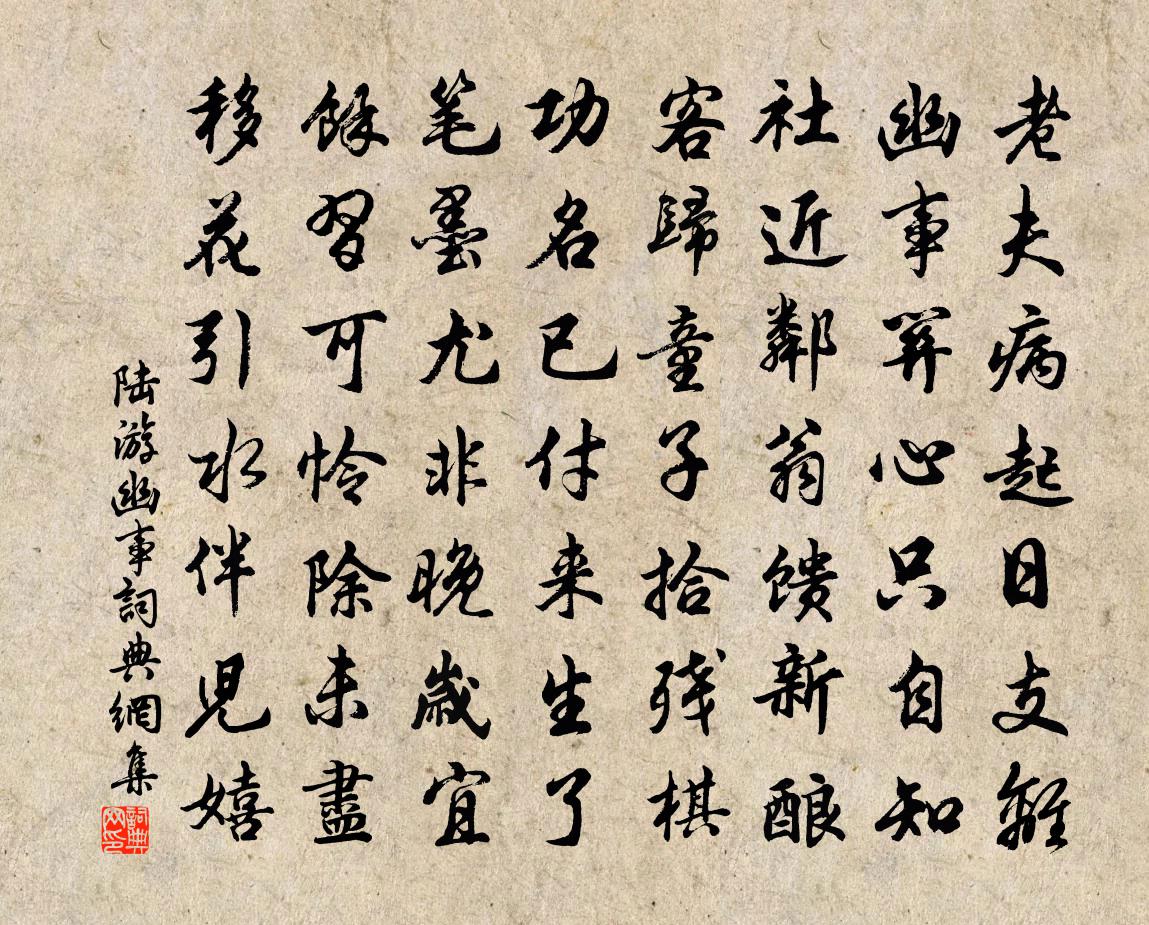 老夫病起日支離
幽事関心只自知
社近鄰翁馈新酿
客歸童子拾残棋
功名已付来生了
笔墨尤非晚歲宜
餘習可怜除未盡
移花引水伴児嬉
陆游幽事詞典網集
詞典网印